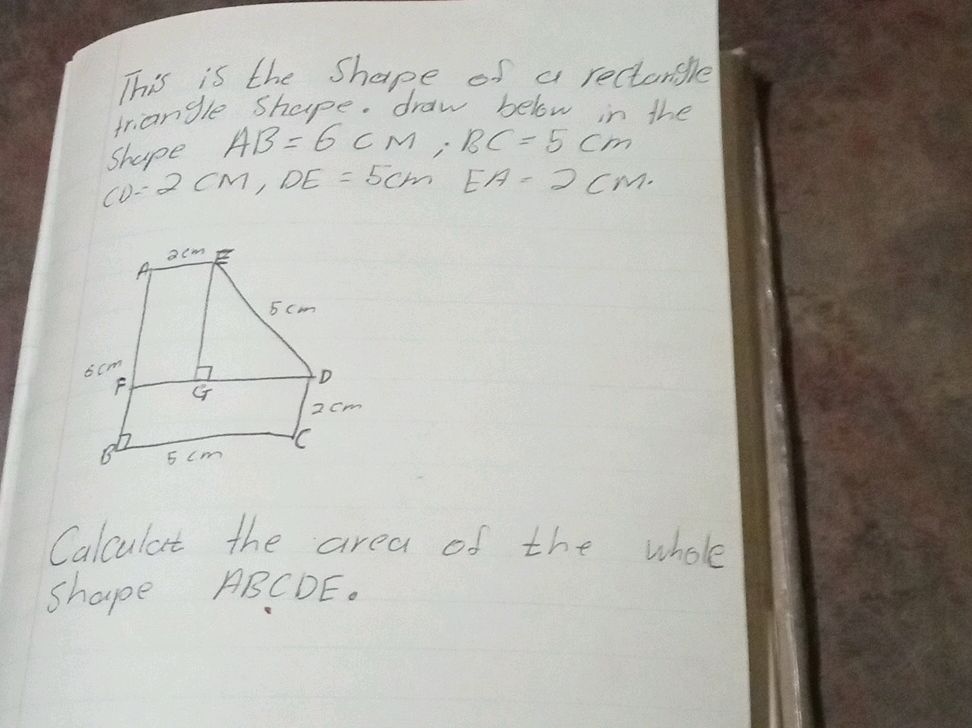 This is the Shape of a rectangle
triangle Shape. draw below in the
Shape AB = 6 CM ; BC = 5 cm
CD = 2 CM, DE = 5cm EA = 2 CM.
2cm
A E
5cm
6cm
F G D
2cm
B C
5cm
Calculat the area of the whole
Shape ABCDE.